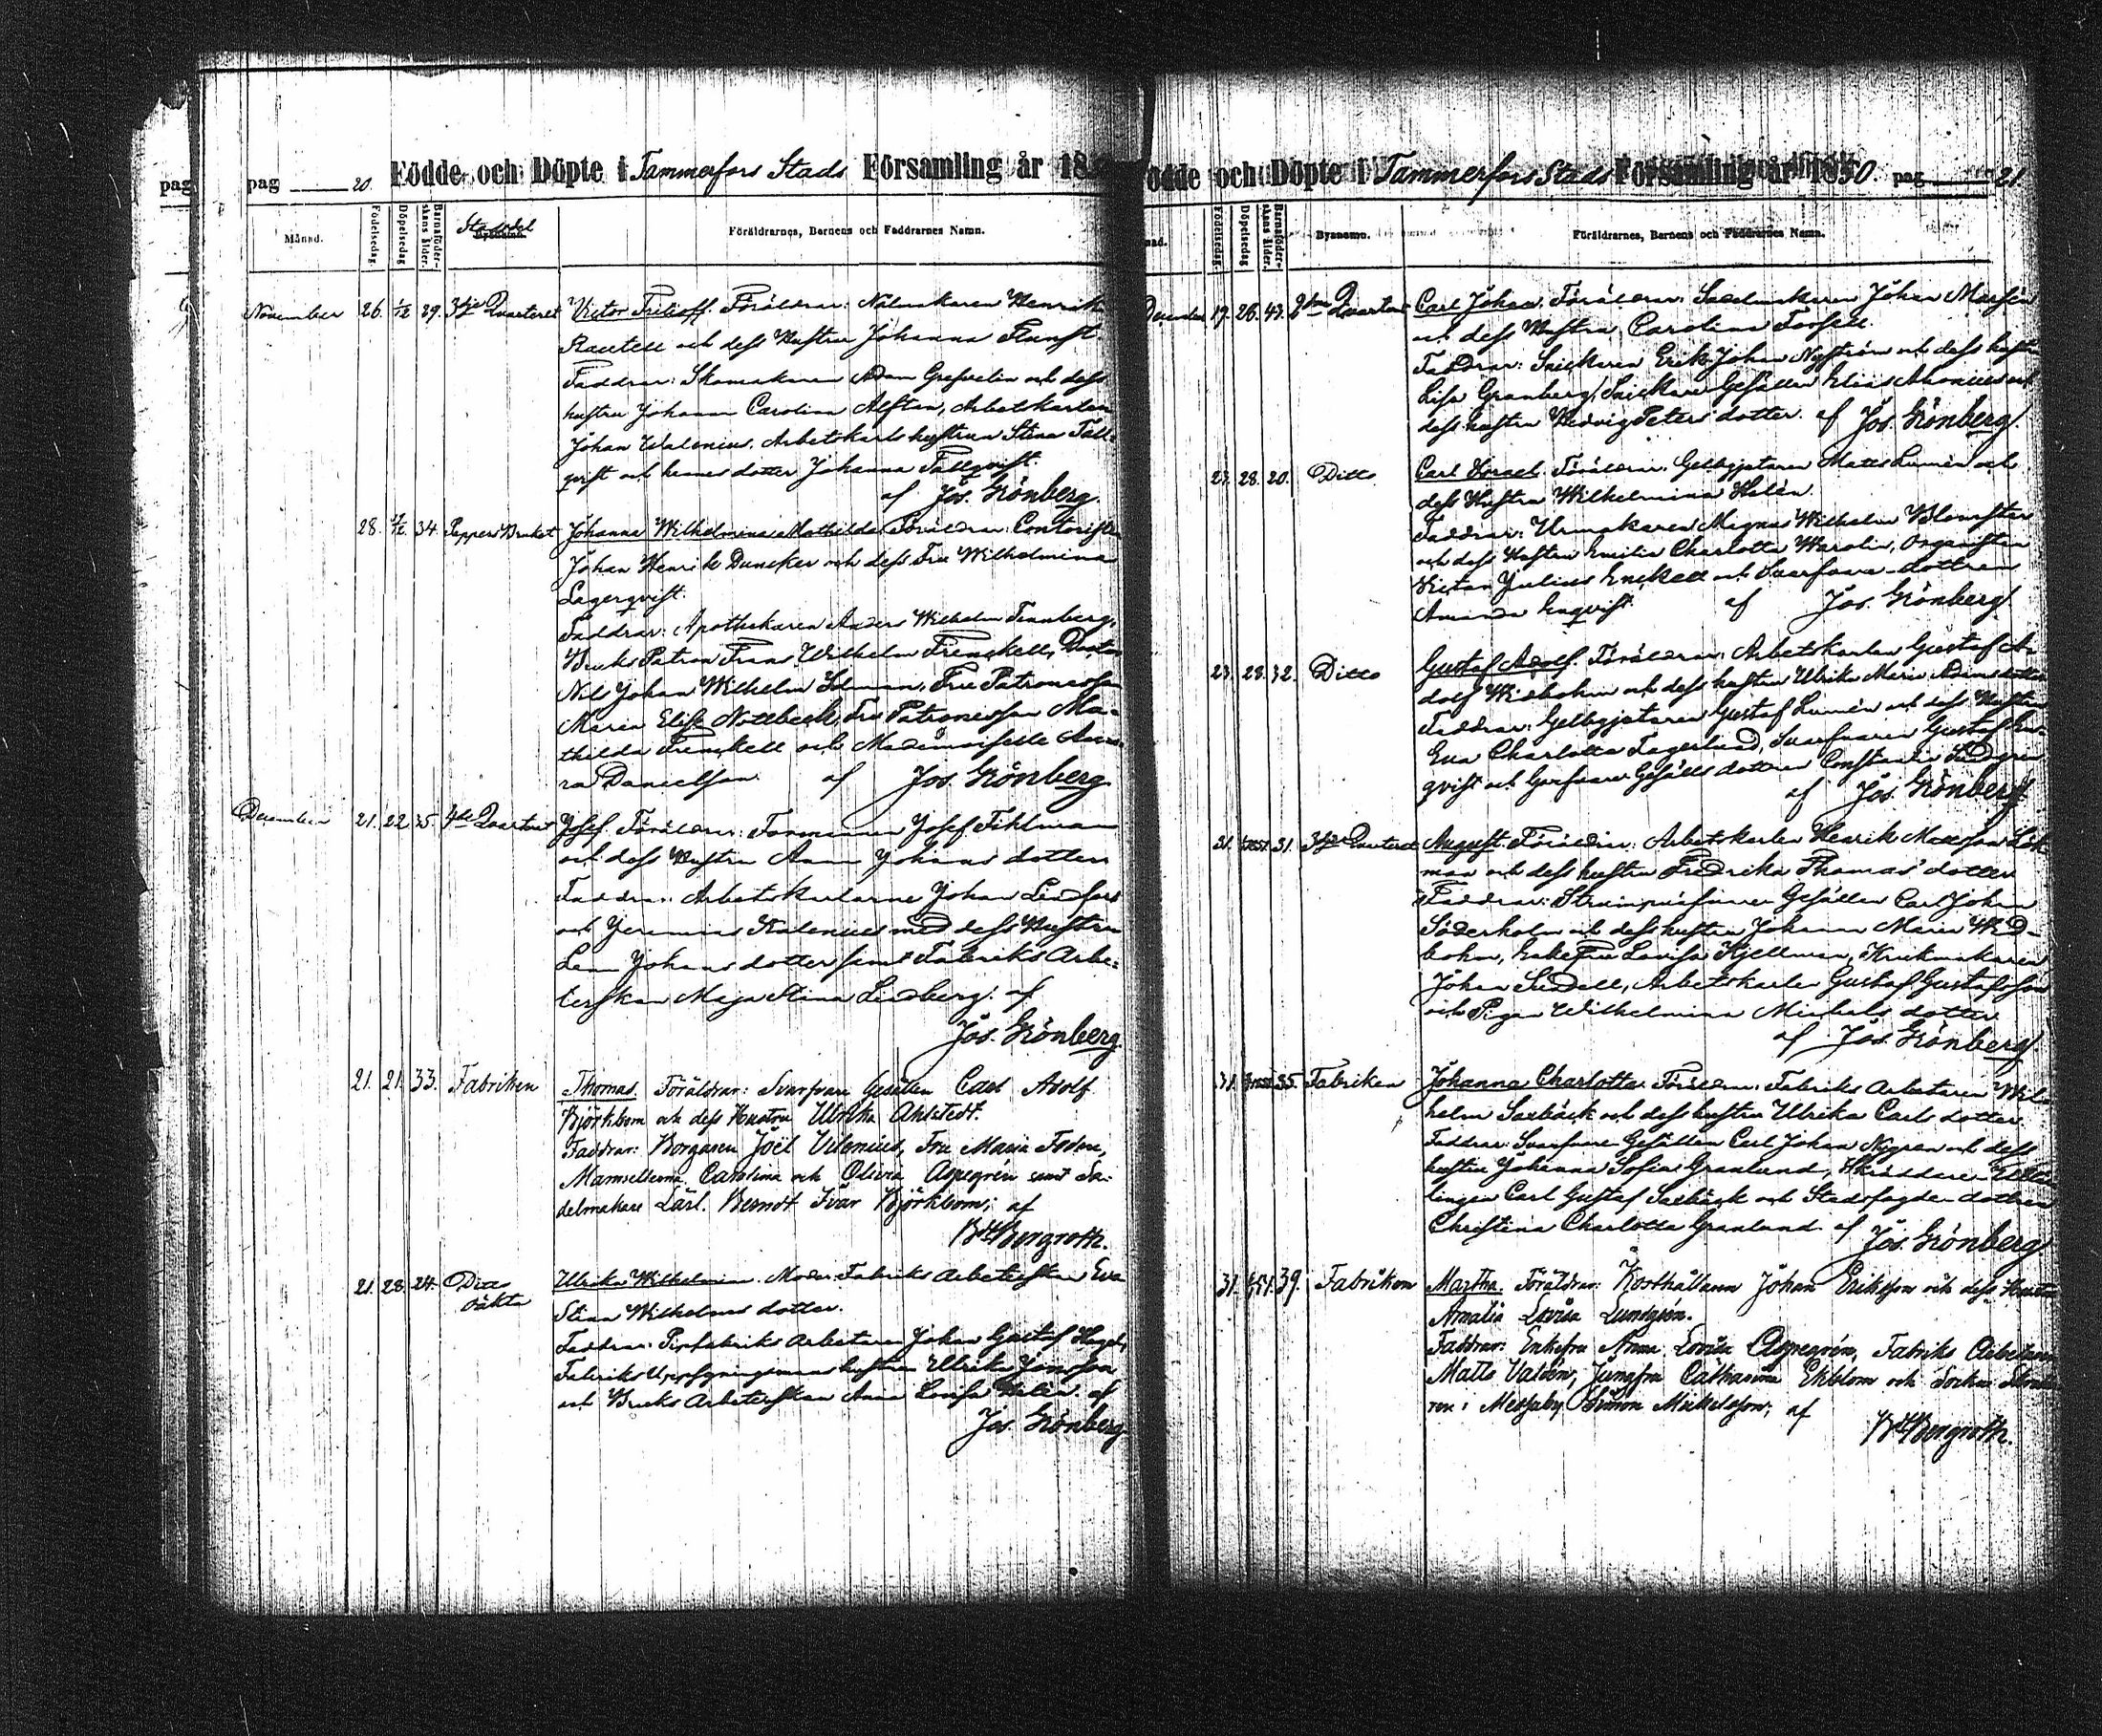 pag
pag 20. Födde och Döpte i Tammerfors Stads Församling år 18
Månad. Födelsedag. Döpelsedag Barnaföderskans ålder. Stadsdel Föräldrarnes, Barnens och Faddrarnes Namn.
November 26. 1/12 29. 3dje Quarteret Victor Frilioff. Föräldrar: Nålmakaren Henrik
Rautell och dess Hustru Johanna
Faddrar: Skomakaren Adam Grefvelin och dess
hustru Johanna Carolina Alftan, Arbetskarlen
Johan Walenius, Arbetskarls hustrun Stina Tall-
qvist och hennes dotter Johanna Tallqvist.
af Jos. Grönberg.
28. 34. Pappers Bruket Johanna Wilhelmina Mathilda. Föräldrar: Contoristen
Johan Henrik Duncker och dess Fru Wilhelmina
Lagerqvist.
Faddrar: Apothekaren Anders Wilhelm Tennberg,
Bruks Patron Frans Wilhelm Frenckell, Doctor
Nils Johan Wilhelm Idman, Fru Patronessan
Maria Elise Nottbeck, Fru Patronessan Ma-
thilda Frenckell och Mademoiselle Auro-
ra Danielson af Jos. Grönberg
December 21. 22 35. 4de Quarteret Josef. Föräldrar: Formannen Josef Fihlman
och dess Hustru Anna Johans dotter
Faddrar: Arbetskarlarne Johan Lindfors
och Jeremias Kalenius med dess Hustru
Lena Johans dotter samt Fabriks Arbe-
terskan Maja Stina Lindberg. af
Jos. Grönberg.
21. 21. 33. Fabriken Thomas. Föräldrar: Svarfvare Gesällen Carl Adolf
Björkbom och dess Hustru Ulrika Ahlstedt.
Faddrar: Borgaren Joel Vilenius, Fru Maria Foden,
Mamsellerna Carolina och Olivia Aspegrén samt Sa-
delmakare Lärl. Berndt Ivar Björkbom; af
Bergroth.
21. 28. 24. Ditto Ulrika Wilhelmina. Moder: Fabriks Arbeterskan Eva
oäkta Stina Wilhelms dotter.
Faddrar: Pipfabriks Arbetaren Johan Gustaf
Fabriks Uppsyningsmans hustrun Ulrika Jansson
och Bruks Arbeterskan Anna Lovisa Helén. af
Jos. Grönberg
Födde och Döpte i Tammerfors Stads Församling år 1850 pag 21.
Födelsedag. Döpelsedag Barnaföderskans ålder. Bysnamn. Föräldrarnes, Barnens och Faddrarnes Namn.
December 19. 26. 43. 2dra Quarteret Carl Johan. Föräldrar: Sadelmakaren Johan Marfén
och dess Hustru Carolina Forssell.
Faddrar: Snickaren Erik Johan Nyström och dess hustru
Lisa Granberg, Snickare Gesällen Elias Ahonius och
dess hustru Hedvig Peters dotter. af Jos. Grönberg.
23. 28. 20. Ditto Carl Israel. Föräldrar: Gelbgjutaren Matts Lumén och
dess Hustru Wilhelmina Helén.
Faddrar: Urmakaren Magnus Wilhelm Blomster
och dess Hustru Emilia Charlotta Warolin, Organisten
Victor Julius Enckell och Svarfvare-dottren
Amanda Enqvist af Jos. Grönberg
23. 28. 32. Ditto Gustaf Adolf. Föräldrar: Arbetskarlen Gustaf A-
dolf Widbohm och dess hustru Ulrika Maria Adams dotter
Faddrar: Gelbgjutaren Gustaf Lumén och dess Hustru
Eva Charlotta Fagerlund, Svarfvaren Gustaf En-
qvist och Garfvare Gesälls dottren Constantia Lindgren
af Jos. Grönberg
31. 31. 3dje Quarteret August. Föräldrar: Arbetskarlen Henrik Mattsson
man och dess hustru Fredrika Thomas dotter
Faddrar: Gesällen Carl Johan
Söderholm och dess hustru Johanna Maria Wid-
bohm, Enkefru Lovisa Kjellman, Krukmakaren
Johan Lindell, Arbetskarlen Gustaf Gustafsson
och Pigan Wilhelmina Michels dotter
af Jos. Grönberg
31. 35. Fabriken Johanna Charlotta. Föräldrar: Fabriks Arbetaren Wil-
helm Saxbäck och dess hustru Ulrika Carls dotter
Faddrar: Svarfvare Gesällen Carl Johan Nygren och dess
hustru Johanna Sofia Granlund, Skräddare
lingen Carl Gustaf Saxbäck och Stadsfogde dottren
Christina Charlotta Granlund. af Jos. Grönberg
31. 39. Fabriken Martha. Föräldrar: Korthållaren Johan Eriksson och dess Hustru
Amalia Lovisa Lundgrén.
Faddrar: Enkefru Anna Lovisa Aspegrén, Fabriks Arbetaren
Matts Valdén, Jungfru Catharina Ekblom och
ren i Messuby Simon Mickelsson; af
Bergroth.